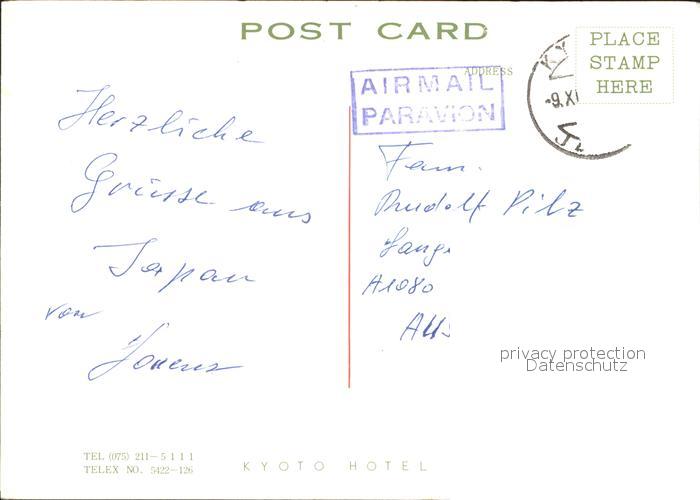 POST CARD
PLACE
STAMP
HERE
ADDRESS
AIR MAIL
PAR AVION
KY
-9.XI
Herzliche
Grüsse aus
Japan
von
Fam.
Rudolf Pilz
Lang
A1080
privacy protection
Datenschutz
TEL (075) 211-5111
TELEX NO. 5422-126
KYOTO HOTEL